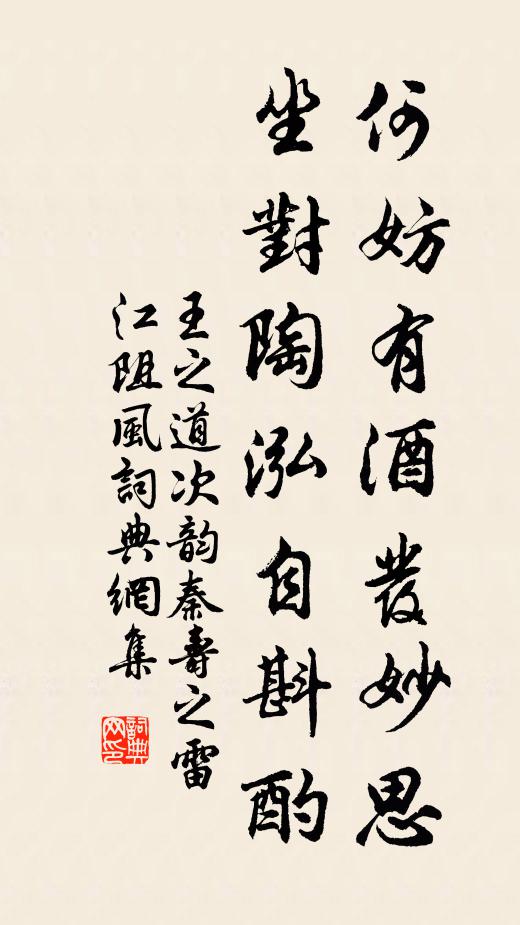 何妨有酒發妙思
坐對陶泓自斟酌
王之道次韵秦壽之雷
江阻風詞典網集
詞典
网印